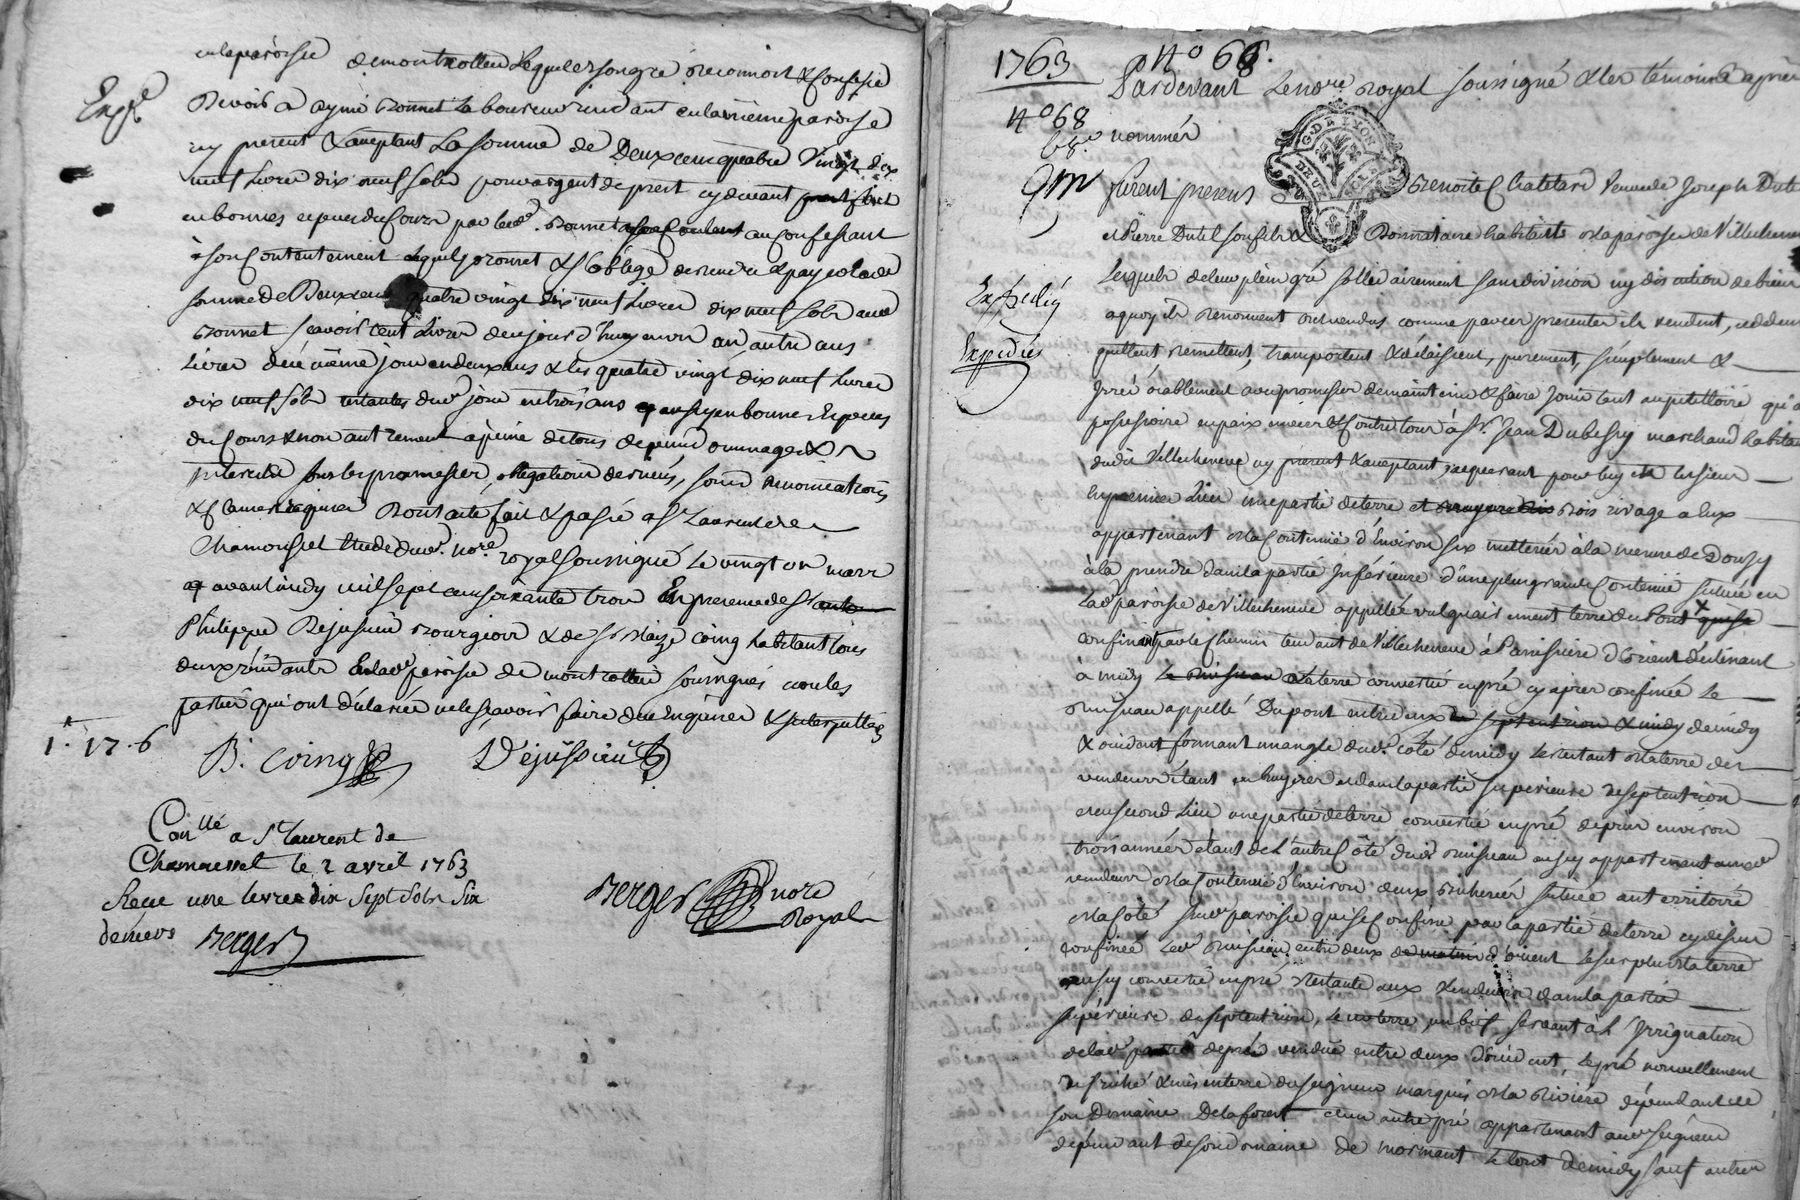 en la paroisse de montrottier Lequel de son gré reconnoit & confesse
Expé
Devoir a aymé Bonnet Laboureur residant en la même paroisse
icy present & aceptant La somme de Deux cent quatre vingt dix
neuf Livres dix neuf sols pour argent de prest cy devant
en bonnes especes du Cours par led. Bonnet au Confessant
à son Contentement lequel promet & s'oblige de rendre & payer lad.
somme de Deux cent quatre vingt dix neuf Livres dix neuf sols aud.
Bonnet scavoir cent Livres dans un an autre cent
Livres dud. même jour en deux ans & les quatre vingt dix neuf Livres
dix neuf sols restantes dud. jour en trois ans & aussy en bonnes Especes
du Cours & non autrement à peine de tous depens dommages &
interests sous les promesses, obligations de biens, soumissions renonciations
& clauses requises Dont acte fait & passé a St Laurent de
Chamousset Etude dud. nore. royal soussigné Le vingt un mars
avant midy mil sept cent soixante trois En presence de
Philippe Dejussieu Bourgeois & de Sr Blaize Coing habitant tous
deux residants En lad. paroisse de montrottier soussignés non les
parties qui ont déclaré ne le scavoir faire de ce Enquises &
1. 17. 6
B. Coing Dejussieu
Conllé a St Laurent de
Chamousset le 2 avril 1763
Reçu une livre dix sept sols six
deniers Berger
Berger nore
Royal
1763 N° 68.
Pardevant Le nore Royal soussigné & les témoins après
N° 68
68e nommés
G. DE LYON
DEUX SOLS
furent presens Benoite Chatelard Veuve de Joseph Dutel
et Pierre Dutel son fils & Donnataire habitants de la paroisse de Villecheneve
Lesquels de leur plein gré sollidairement sans division ny discution de biens
Expedié
a quoy ils Renoncent ont vendus comme par ces presentes ils vendent, cedent
Expediés
quittent remettent, transportent & délaissent, purement, simplement &
Irrévocablement avec promesse de maintenir & faire jouir tant au pétitoire qu'au
possessoire en paix envers & Contre tous à Sr. Jean Dubessy marchand habitant
dudit Villecheneve icy present & aceptant, acquerant pour luy & les siens
En premier Lieu une partie de terre et Bois rivage a Eux
appartenant de la Contenue d'Environ six metterés à la mesure de Donzy
à la prendre dans la partie Inférieure d'une plus grande Contenue scituée en
Lad. paroisse de Villecheneve appellée vulgairement terre du Pont
confinant par le Chemin tendant de Villecheneve à Panissiere d'orient déclinant
à midy La terre convertie en pré cy apres confinée Le
Ruisseau appellé Du pont entre deux de midy
& occident formant un angle dud. coté de midy Le restant de la terre des
vendeurs étant en bruyeres et dans la partie superieure de septentrion
et en second Lieu une partie de terre convertie en pré depuis environ
trois années étant de L'autre Côté dud. Ruisseau aussy appartenant auxd.
vendeurs de la Contenue d'Environ deux Bicherées scituée au territoire
de la Côte susd. paroisse qui se confine par la partie de terre cy dessus
confinée Led. Ruisseau entre deux d'orient Le surplus de la terre
aussy convertie en pré restante aux vendeurs dans la partie
superieure de septentrion, un bief servant à L'Irrigation
de lad. de pré vendue entre deux d'occident, le pré nouvellement
défriché & mis en terre du seigneur marquis de la Riviére dépendant de
son Domaine De la forest et un autre pré appartenant aud. seigneur
dépendant de son domaine de mormant de midy sauf autres